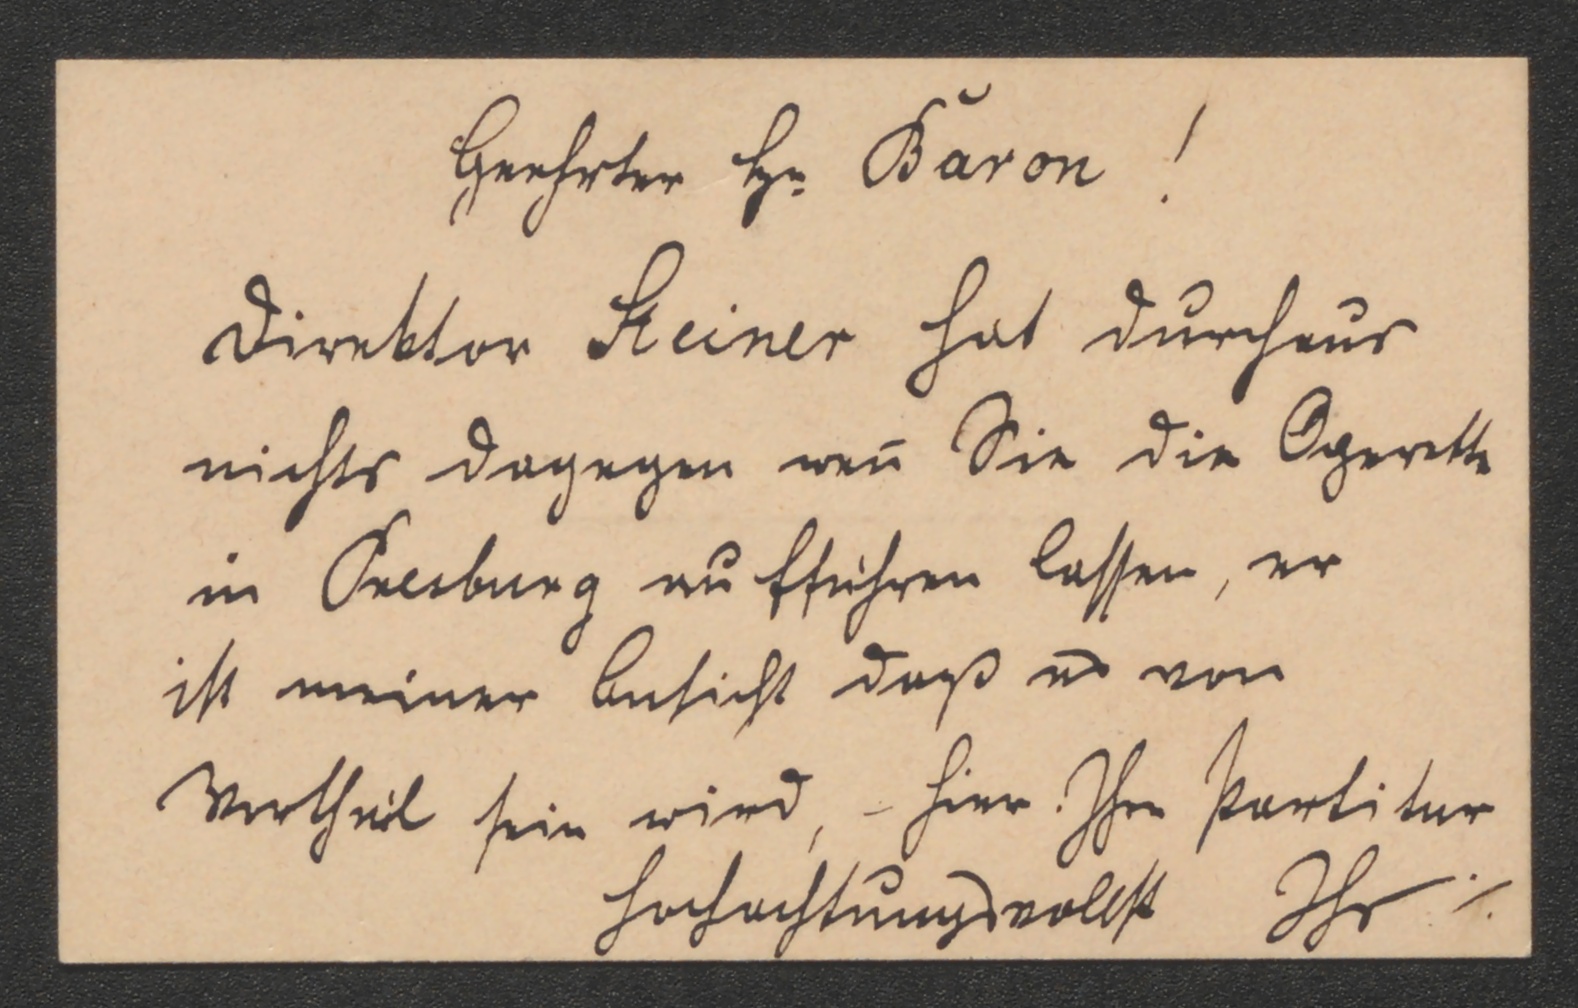 Geehrter Hr. Baron!
Direktor Steiner hat durchaus
nichts dagegen wen̄ Sie die Operette
in Presburg aufführen lassen, er
ist meiner Ansicht daß es von
Vortheil sein wird, – hier Ihre Partitur
hochachtungsvollst Ihr ./.